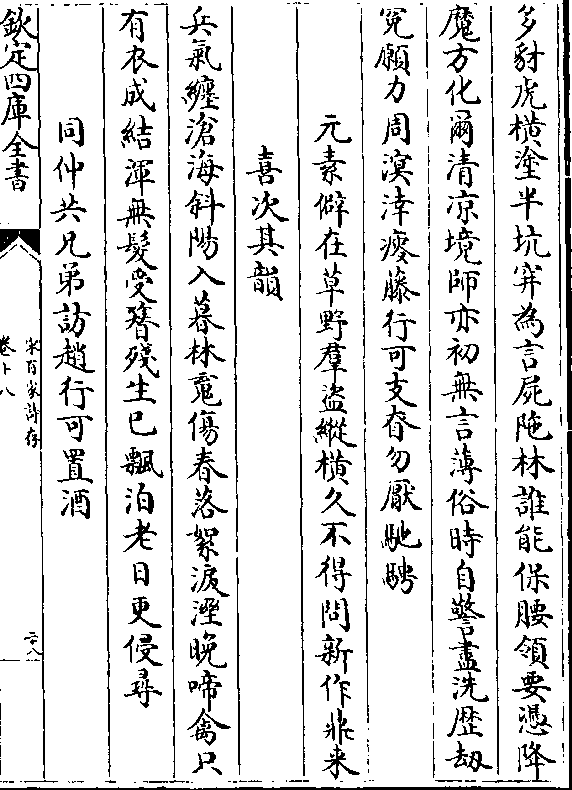 多豺虎橫塗半坑穽為言屍陁林誰能保腰領要憑降
魔方化爾清凉境師亦初無言薄俗時自警盡洗歴劫
冤願力周溟涬瘦藤行可支眘勿厭馳騁
元素僻在草野羣盜縱橫久不得問新作飛来
喜次其韻
兵氣纏滄海斜陽入暮林䰟傷春落絮淚溼晚啼禽只
有衣成結渾無髮受簪殘生已飄泊老日更侵尋
同仲共兄弟訪趙行可置酒
欽定四庫全書
宋百家詩存
卷十八
二八